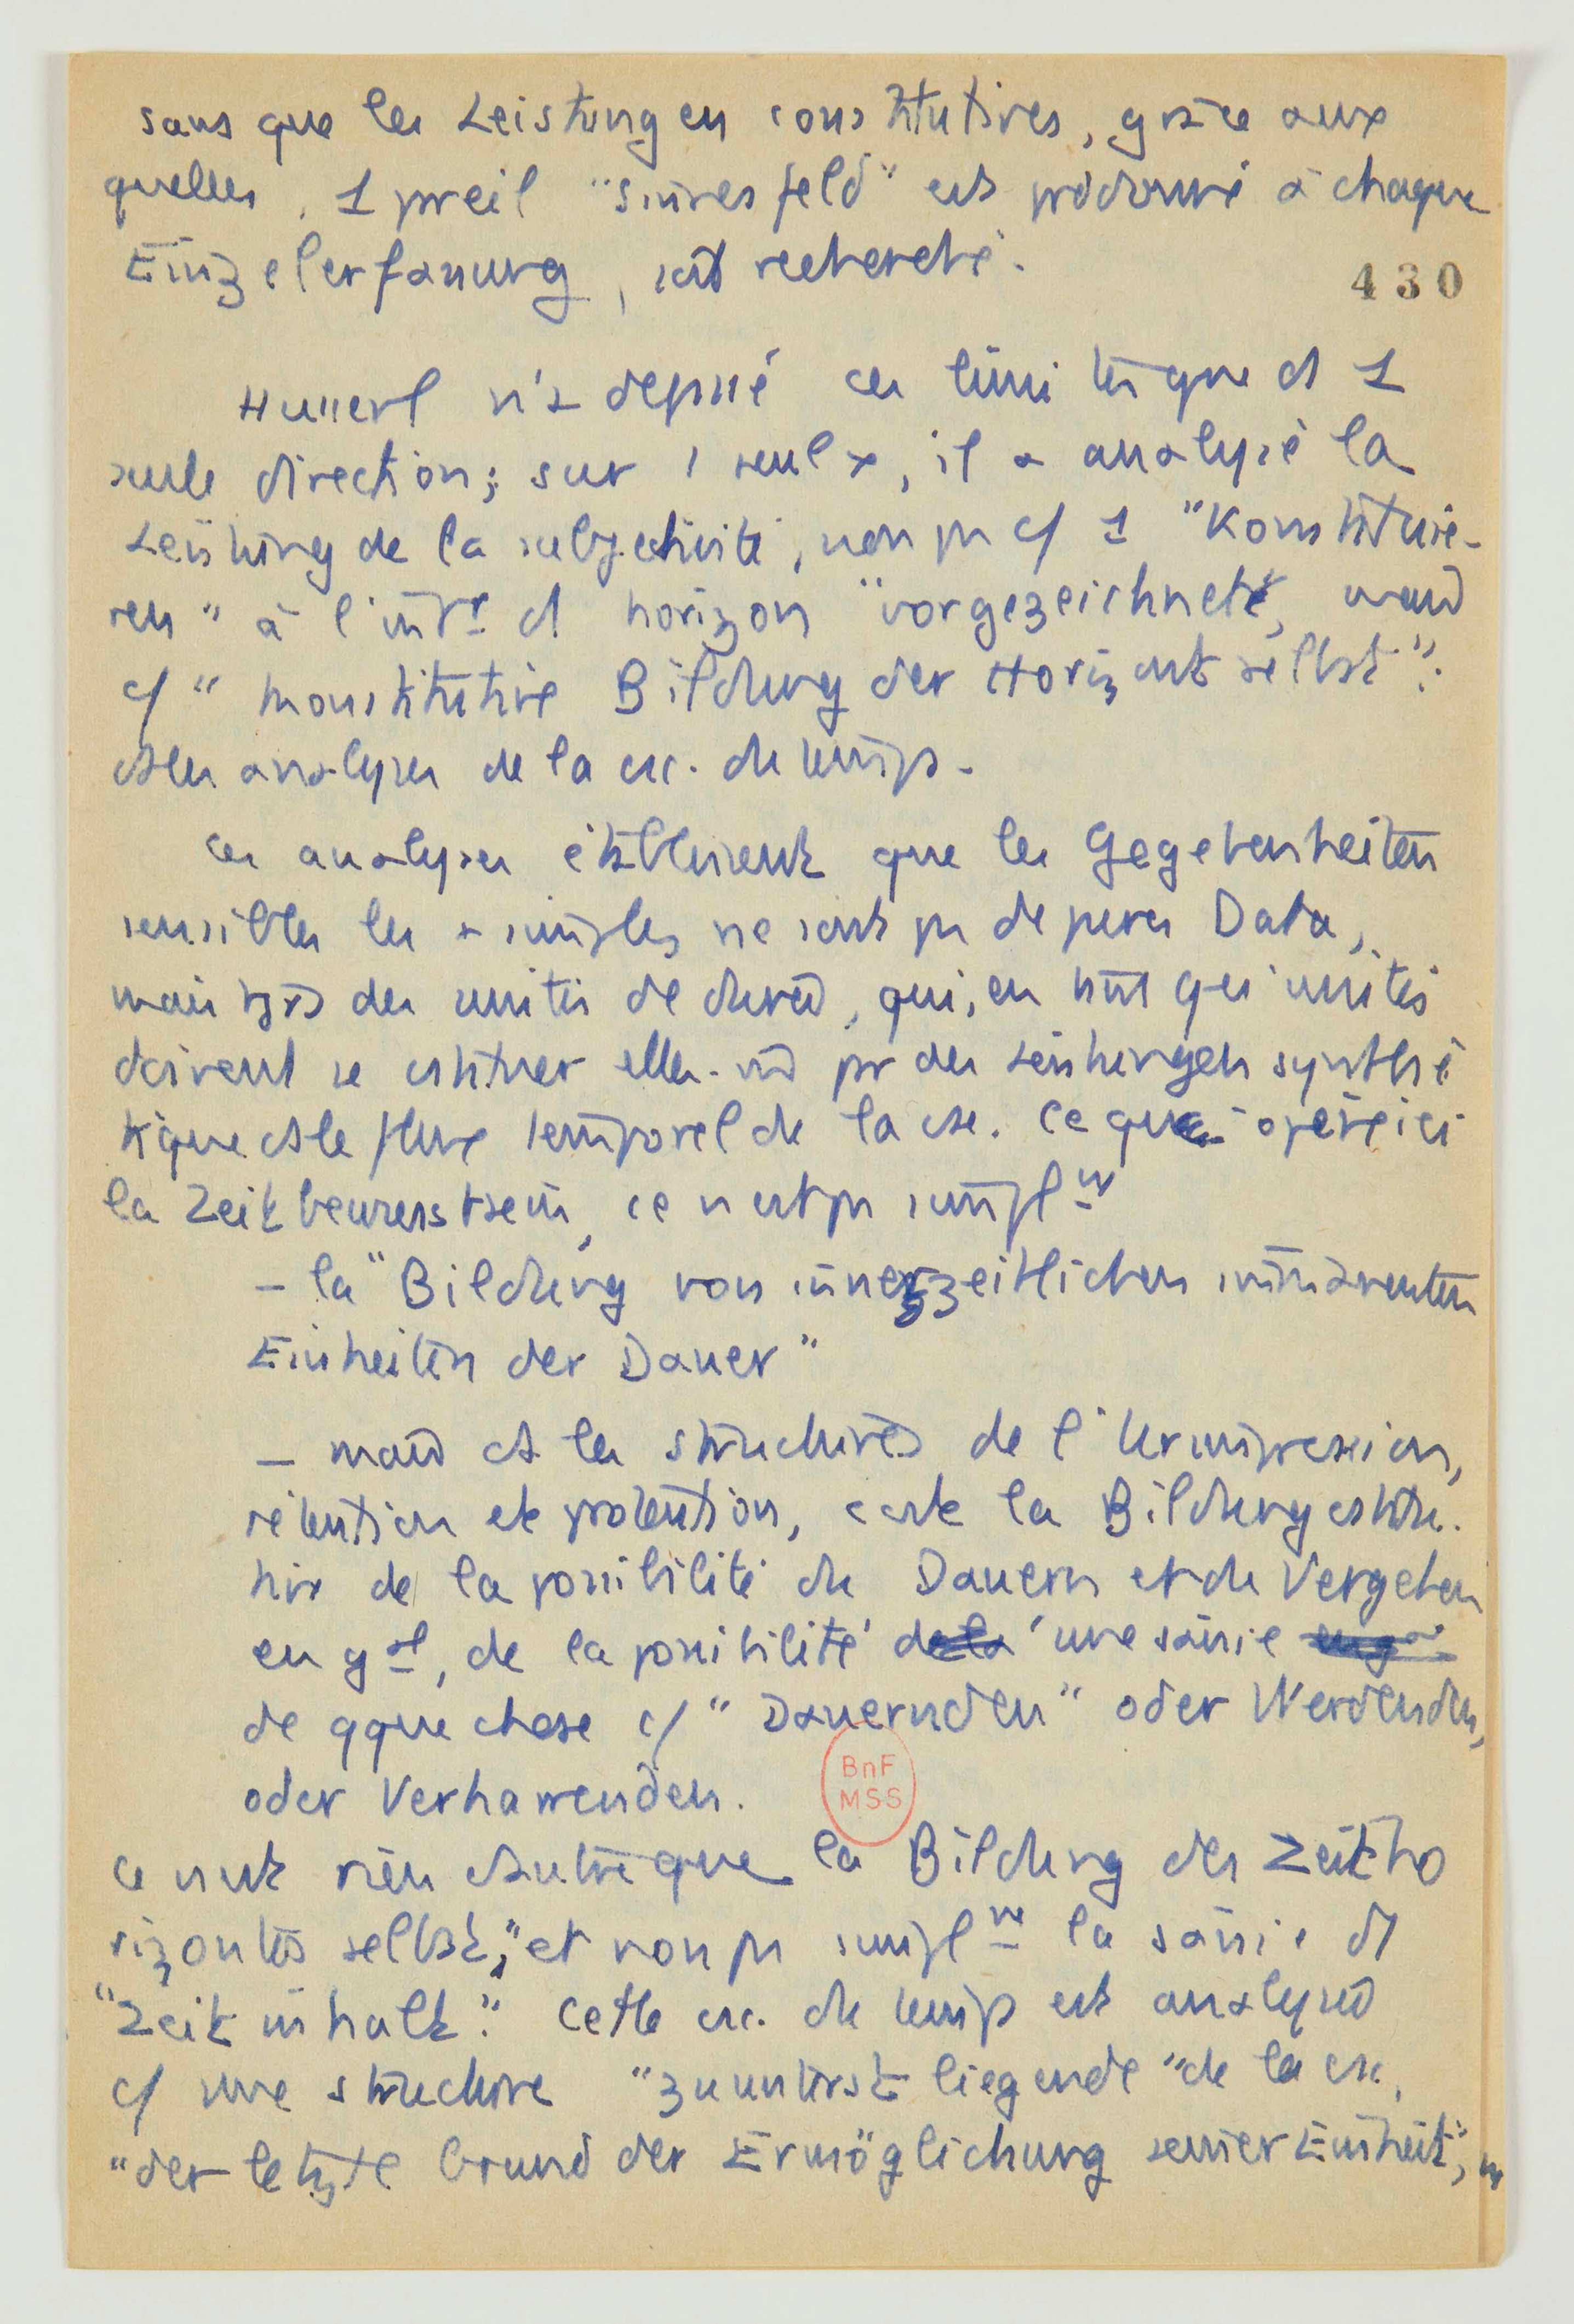 sans que les Leistungen constitutives, grâce aux
quelles, 1 pareil "Sinnesfeld" est prédonné à chaque
Einzelerfassung, soit recherché.
430
Husserl n'a dépassé ces limites que ds 1
seule direction; sur 1 seul x, il a analysé la
Leistung de la subjectivité, non ps c/ 1 "Konstituie-
ren" à l'intr d horizon "vorgezeichnet", mais
c/ "konstitutive Bildung der Horizont selbst":
ds les analyses de la csc. du temps.
Ces analyses établissent que les Gegebenheiten
sensibles les + simples ne sont ps de pures Data,
mais tjrs des unités de durée, qui, en tant qu'unités
doivent se cstituer elles-m̄ pr des Leistungen synthé
tique ds le flux temporel de la csc. Ce que opère ici
la Zeitbewusstsein, ce n'est ps simplnt
- la "Bildung von innerzeitlichen immanenten
Einheiten der Dauer"
- mais ds les structures de l'Urimpression,
rétention et protention, c'est la Bildung cstitu-
tive de la possibilité du Dauern et du Vergehen
en gal, de la possibilité d'une saisie
de qque chose c/ "Dauernden" oder Werdenden,
oder Verharrenden.
BnF
MSS
Ce n'est rien d'autre que la Bildung des Zeitho
rizontes selbst," et non ps simplnt la saisie d
"Zeitinhalt". Cette csc. du temps est analysée
c/ une structure "zuunterst liegende" de la csc,
"der letzte Grund der Ermöglichung seiner Einheit",